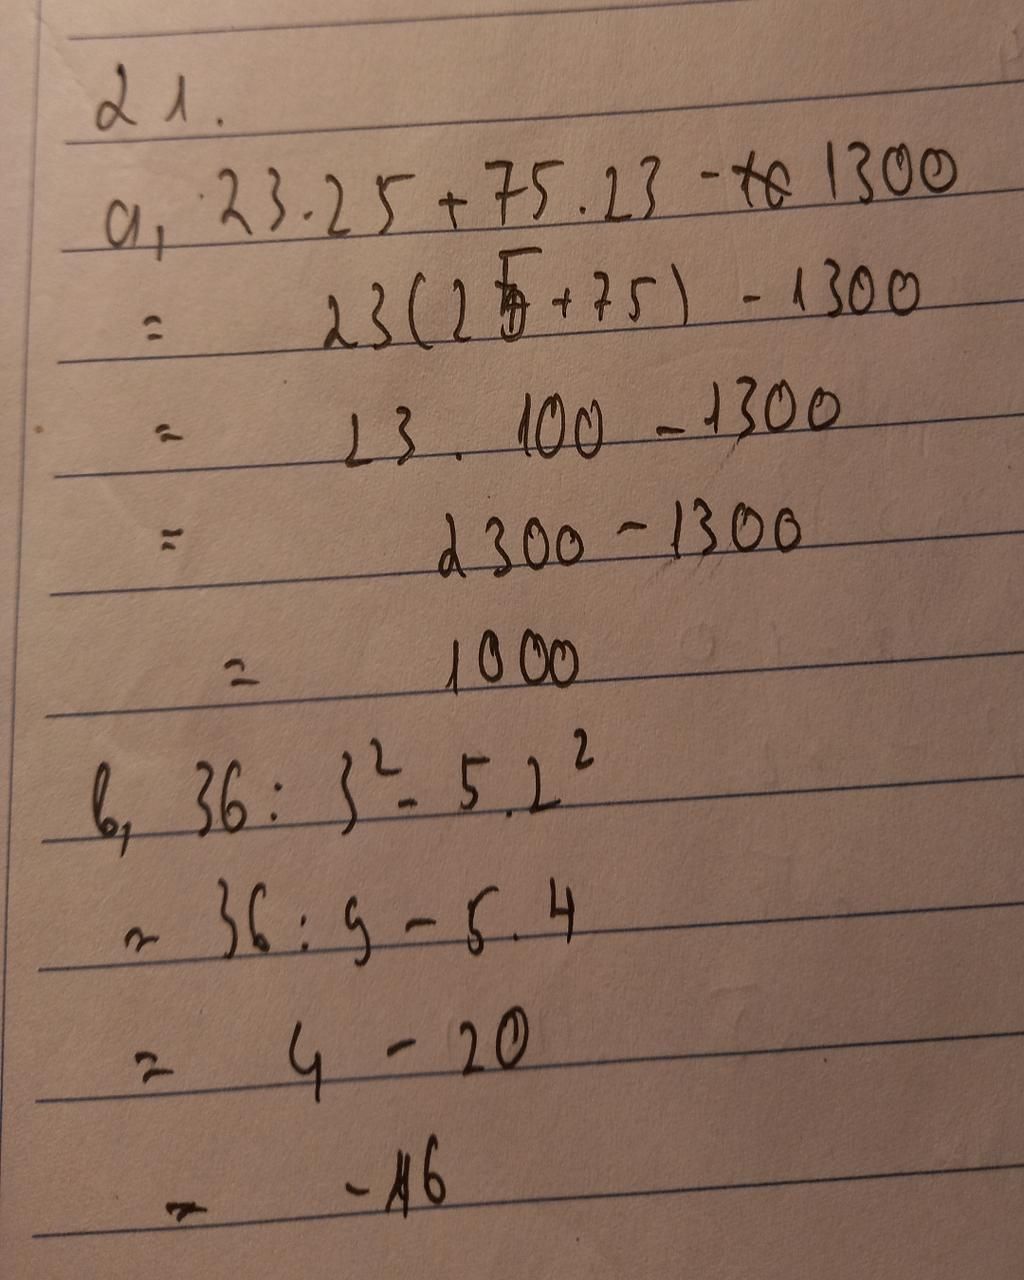 21.
a, 23.25 + 75.23 - 1300
= 23(25 + 75) - 1300
= 23 . 100 - 1300
= 2300 - 1300
= 1000
b, 36 : 3² - 5.2²
= 36 : 9 - 5.4
= 4 - 20
= -16